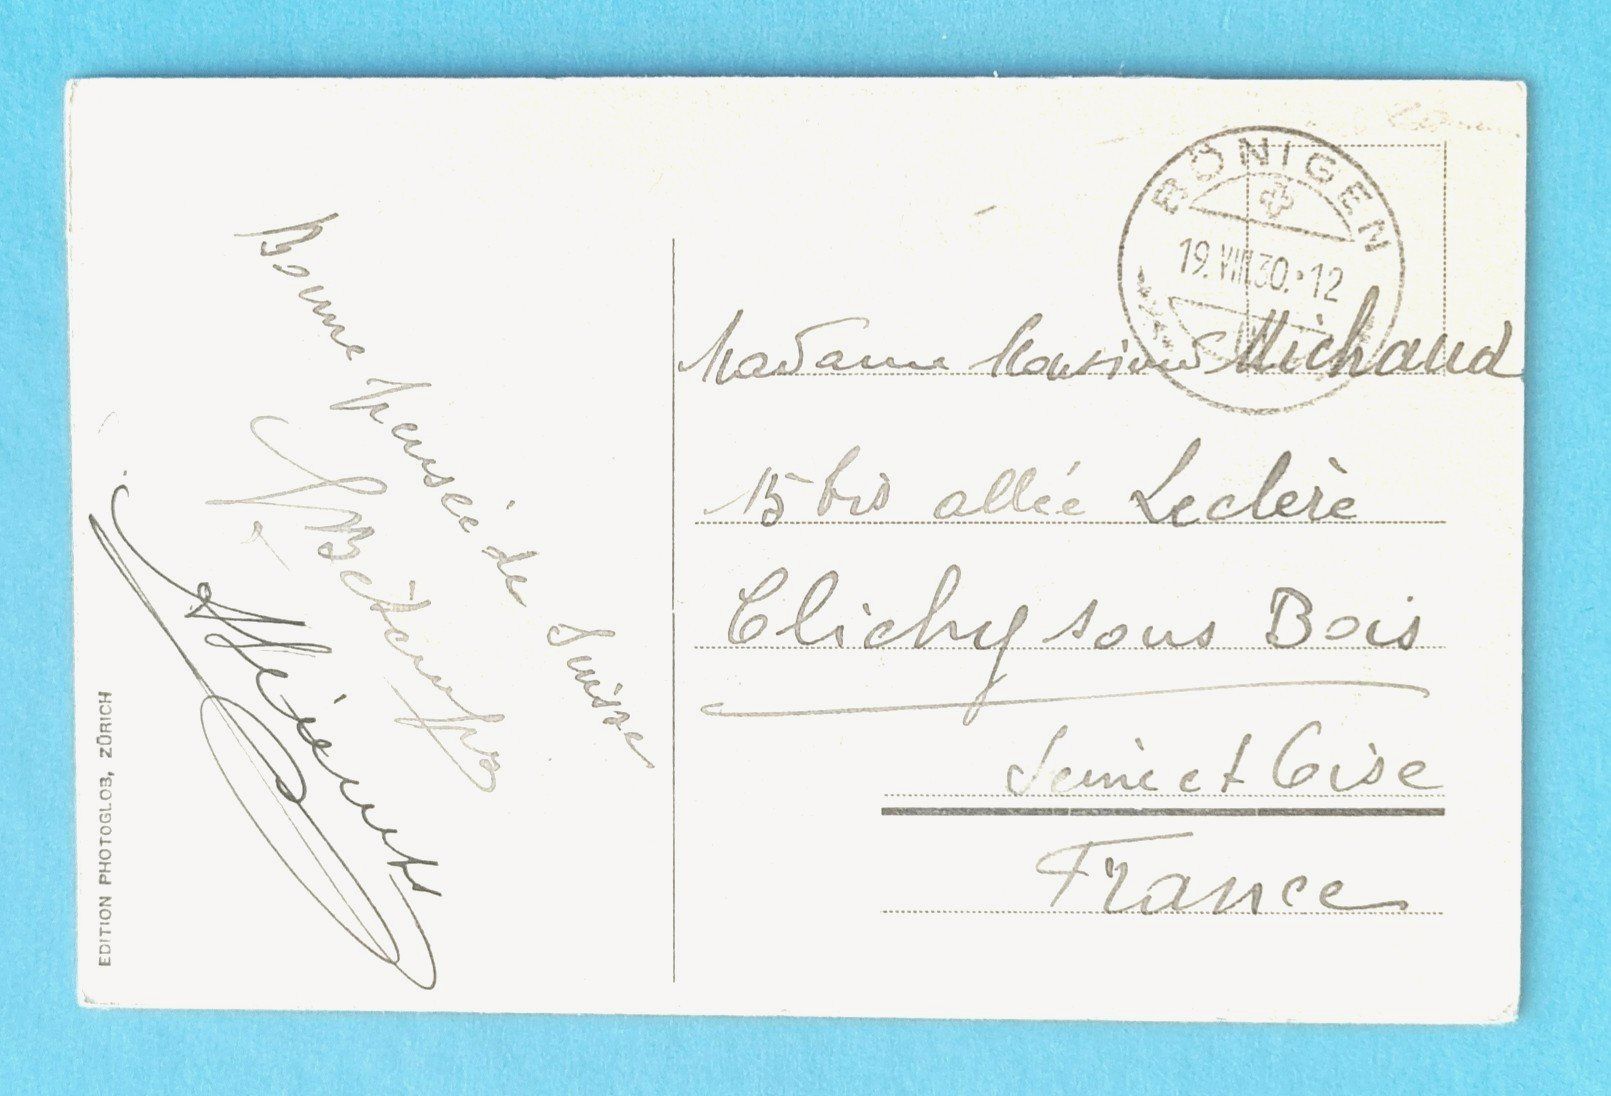 BÖNIGEN
19.VIII.30.-12
Bonne Pensée de Suisse
Madame Monsieur Michaud
15 bis allée Leclère
Clichy sous Bois
Seine et Oise
France
EDITION PHOTOGLOB, ZÜRICH